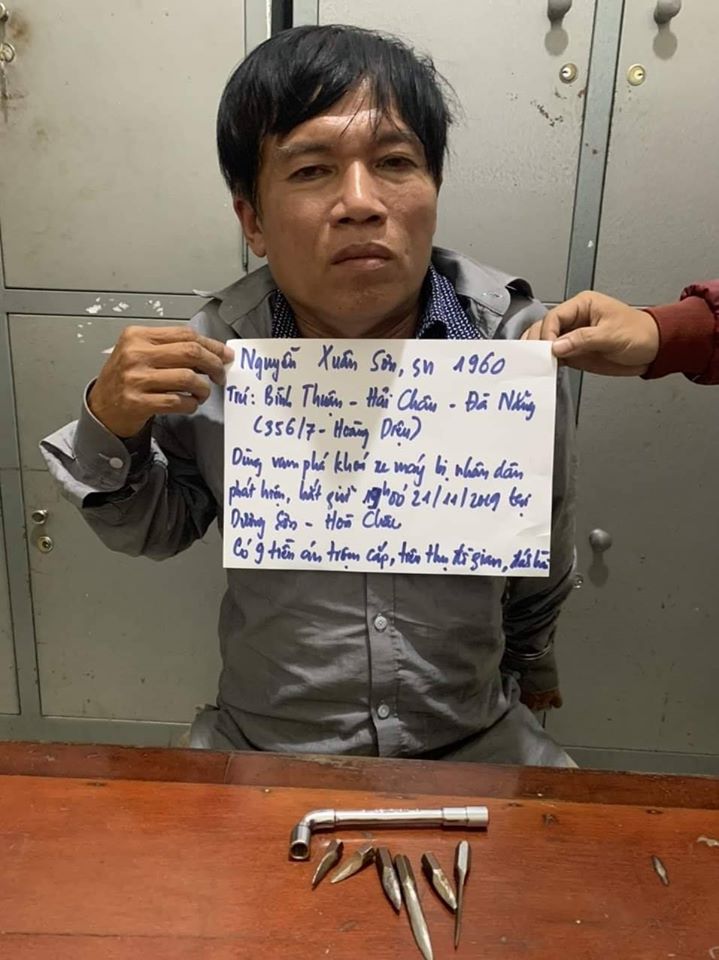 Nguyễn Xuân Sơn, sn 1960
Trú: Bình Thuận - Hải Châu - Đà Nẵng
(356/7 - Hoàng Diệu)
Dùng vam phá khoá xe máy bị nhân dân
phát hiện, bắt giữ 19h00 21/11/2019 tại
Dương Sơn - Hoà Châu
Có 9 tiền án trộm cắp, tiêu thụ đồ gian,